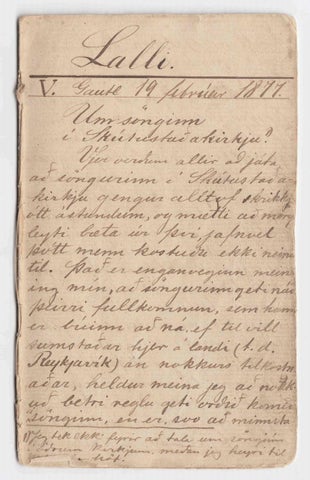 Lalli.
V. Gautl 19 febrúar 1877.
Um sönginn
í Skútustaðakirkju.¹⁾
Vjer verðum allir að játa
að söngurinn í Skútustaða-
kirkju gengur alltof skrikkj-
ótt ástundum, og mætti að mörgu
leyti bæta úr því jafnvel
þótt menn kostuðu ekki neinu
til. Það er enganveginn mein-
ing mín, að söngurinn geti náð
þeirri fullkomnun, sem hann
er búinn að ná, ef til vill
sumstaðar hjer á landi (t. d.
Reykjavík) án nokkurs tilkostn-
aðar, heldur meina jeg að nokk-
uð betri reglu geti orðið komið
sönginn, en er, svo að minnsta
¹⁾ Jeg tek ekki fyrir að tala um sönginn
öðrum kirkjum, meðan jeg heyri til